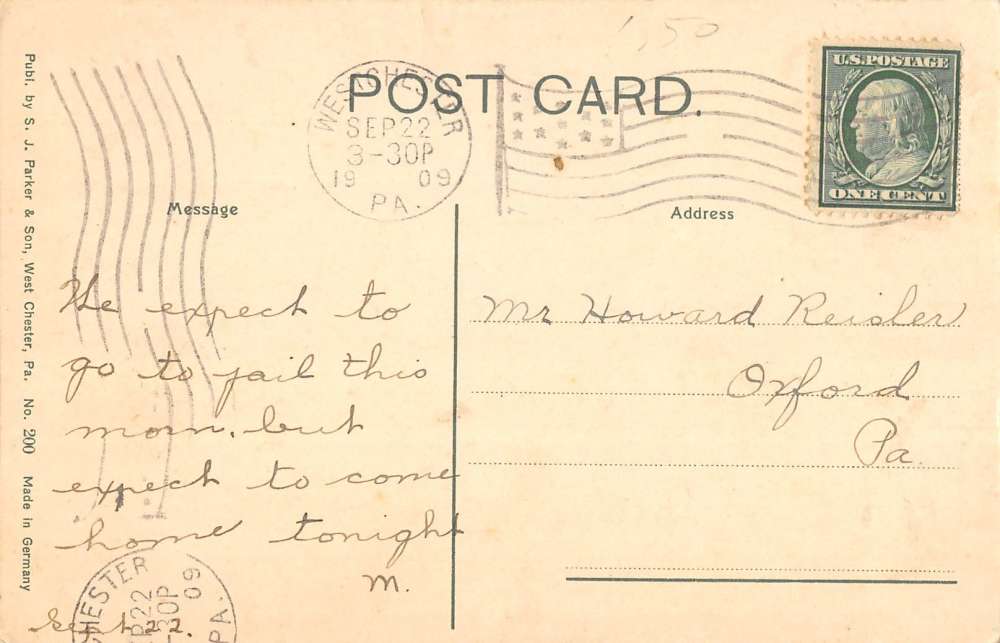 1,50
POST CARD.
WEST CHESTER
SEP 22
3-30P
19 09
PA.
U.S. POSTAGE
ONE CENT
Message
Address
We expect to
go to jail this
morn. but
expect to come
home tonight
M.
Sept 22.
Mr Howard Reisler
Oxford
Pa.
CHESTER
P22
-30P
09
PA.
Publ. by S. J. Parker & Son, West Chester, Pa. No. 200 Made in Germany